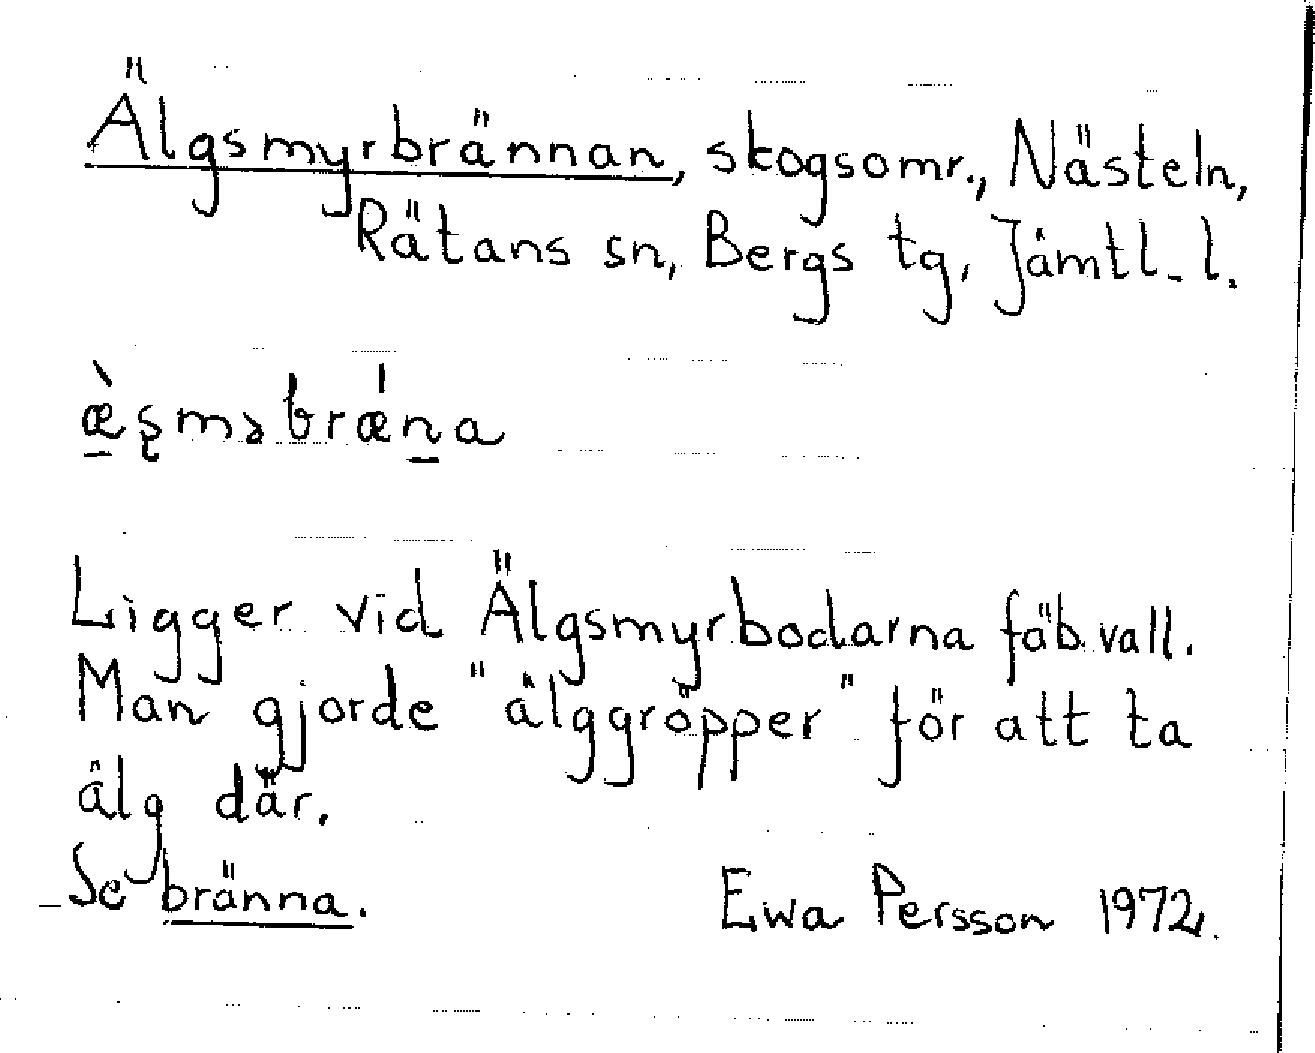 Älgsmyrbrännan, skogsomr., Nästeln,
Rätans sn, Bergs tg, Jämtl. l.
Ligger vid Älgsmyrbodarna fäb.vall.
Man gjorde "älggröpper" för att ta
älg där.
Se bränna.
Ewa Persson 1972.